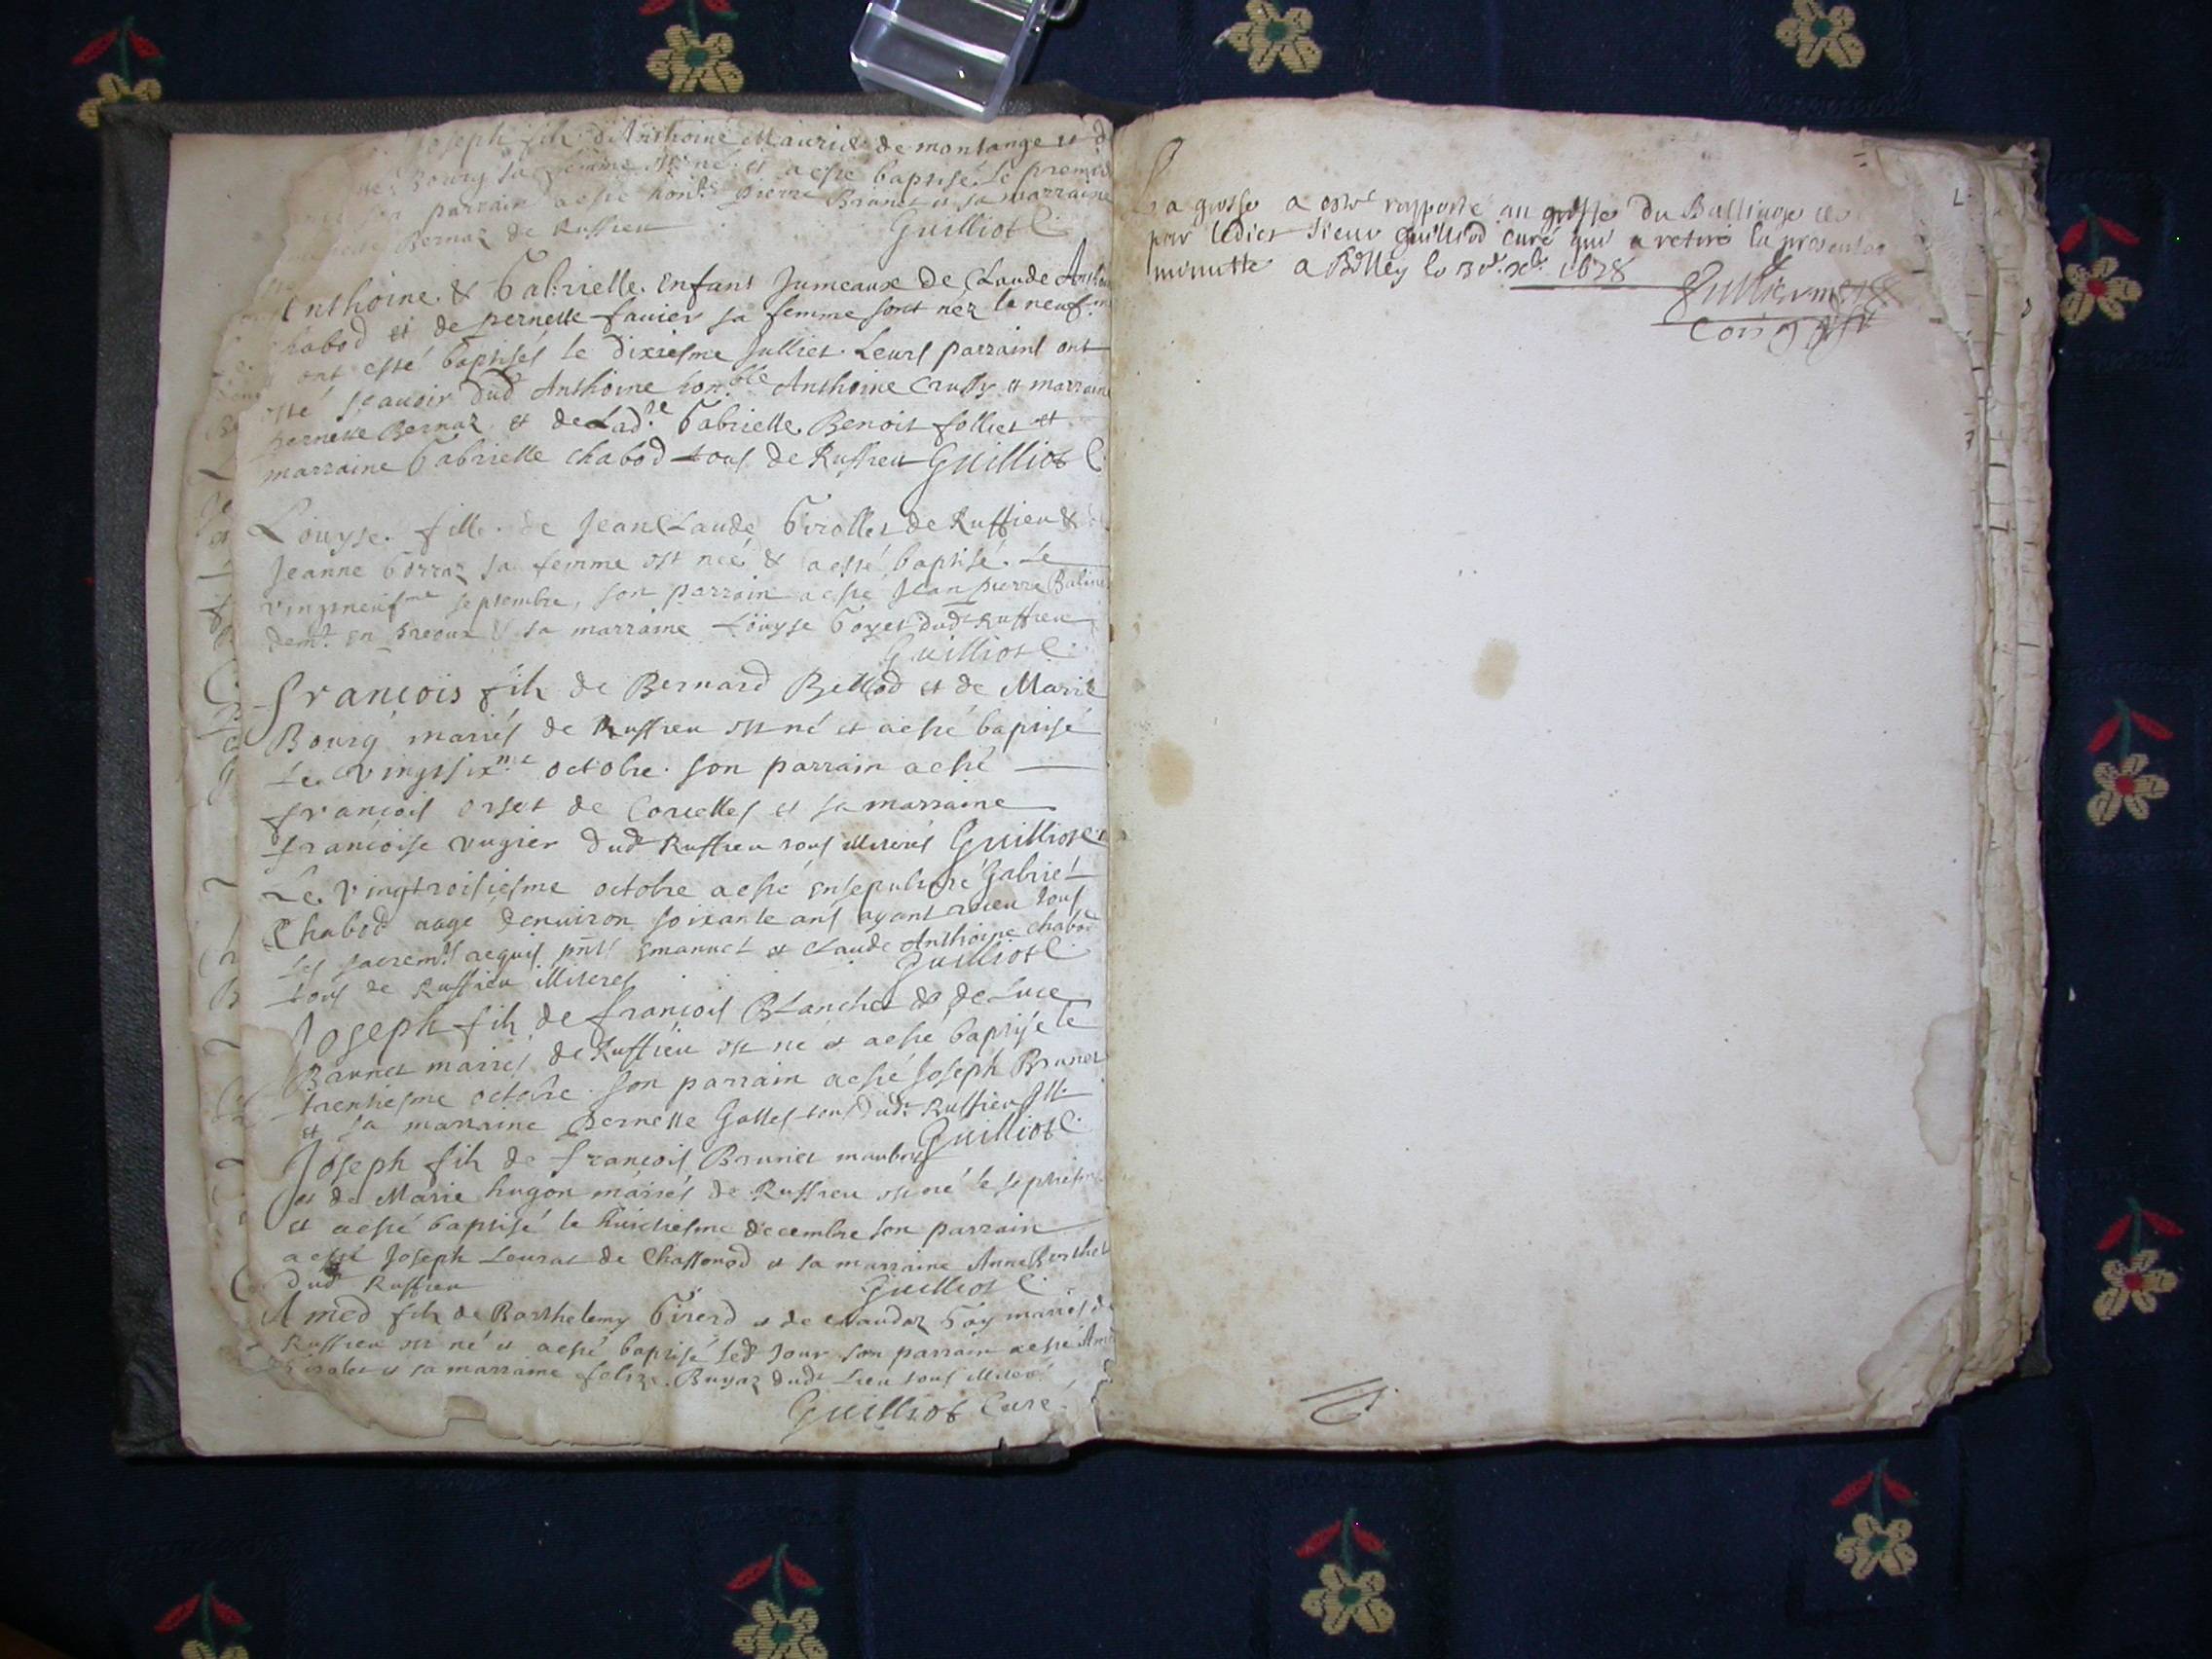 Joseph fils d'Anthoine Mauris de montange et d
Bourg sa femme est né et a esté baptisé le premier
son parrain a esté honble pierre Brunet et sa marraine
Bernaz de Ruffieu Guilliot C.
Anthoine & Gabrielle enfans Jumeaux de Claude Antho
Chabod et de pernette fauier sa femme sont nez le neufme
ont esté baptisés le dixiesme Julliet. Leurs parrains ont
esté scauoir dud Anthoine honble Anthoine Crussy et marraine
pernette Bernaz et de Lad.te Gabrielle Benoit folliet et
marraine Gabrielle chabod tous de Ruffieu Guilliot C.
Louyse fille de Jean Claude Girollet de Ruffieu &
Jeanne Gorraz sa femme est neé & a esté baptisé. Le
vingtneufme septembre, son parrain a esté Jean pierre
demt en & sa marraine Louyse Goyet dudt Ruffieu
Guilliot C.
françois fils de Bernard Billod et de Marie
Bourg mariés de Ruffieu est né et a esté baptisé
Le vingtsixme octobre. son parrain a esté
françois orset de Corcelles et sa marraine
françoise vugier dudt Ruffieu tous illiterés Guilliot C.
Le vingtroisiesme octobre a esté ensepulturé Gabriel
Chabod aagé denuiron soixante ans ayant receu tous
les sacremts requis pnts Emanuel et Claude Anthoine chabod
tous de Ruffieu illiteres Guilliot C.
Joseph fils de françois Blanchet & de Luce
Brunet mariés de Ruffieu est né et a esté baptisé le
trentiesme octobre. son parrain a esté Joseph Brunet
et sa marraine pernette Gallet tous dudt Ruffieu Ill.
Guilliot C.
Joseph fils de françois Brunet
et de Marie hugon mariés de Ruffieu est né le septiesme
et a esté baptisé le huictiesme decembre son parrain
a esté Joseph Leurat de Chassonod et sa marraine Anne Berthet
dudt Ruffieu Guilliot C.
Amed fils de Barthelemy Girerd et de Claudaz Gay mariés de
Ruffieu est né et a esté baptisé led Jour son parrain a esté Amed
Girolet et sa marraine felize Buyaz dudt Lieu tous illiteré
Guilliot Curé
La grosse a esté rapporté au greffe du Balliage
par ledict sieur Guilliod curé qui a retiré la presente
minutte a Belley le 1678